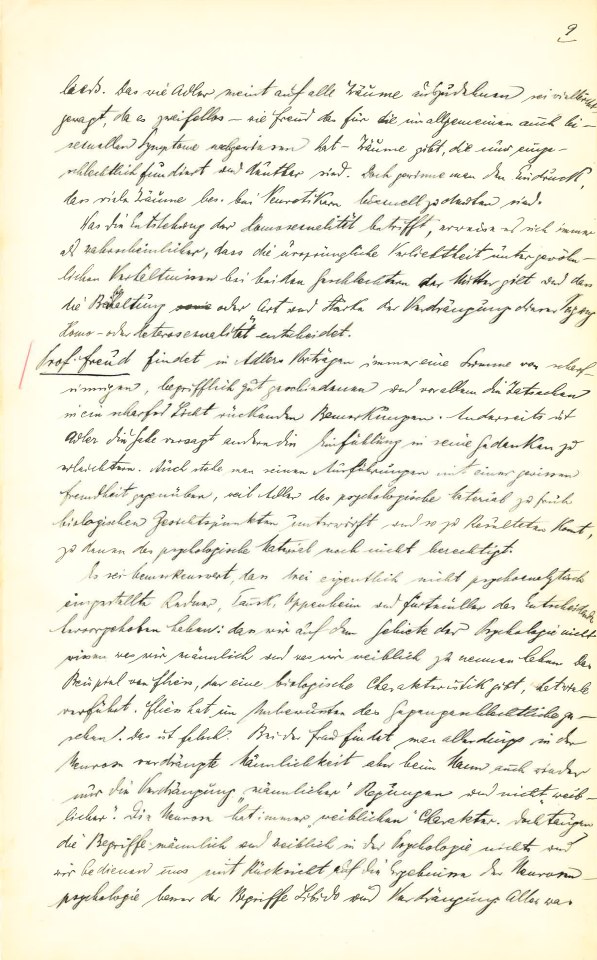 9
lasse. Das wie Adler meint auf alle Träume auszudehnen sei vielleicht
gewagt, da es zweifellos – wie Freud das für die im allgemeinen auch bi-
sexuellen Symptome nachgewiesen hat – Träume gibt, die nur einge-
schlechtlich fundiert und deutbar sind. Doch gewinne man den Eindruck,
dass viele Träume bes. bei Neurotikern bisexuell zu deuten sind.
Was die Entstehung der Homosexualität betrifft, erweise es sich immer
als wahrscheinlicher, dass die ursprüngliche Verliebtheit unter gewöhn-
lichen Verhältnissen bei beiden Geschlechtern der Mutter gilt und dass
die oder Art und Stärke der Verdrängung dieser Neigung
Homo- oder Heterosexualität entscheidet.
Prof. Freud findet in Adlers Vorträgen immer eine Summe von scharf-
sinnigen, begrifflich gut geschiedenen und vor allem die Tatsachen
in ein scharfes Licht rückenden Bemerkungen. Anderseits ist
Adler die Gabe versagt andern die Einfühlung in seine Gedanken zu
erleichtern. Auch stehe man seinen Ausführungen mit einer gewissen
Fremdheit gegenüber, weil Adler das psychologische Material zu früh
biologischen Gesichtspunkten unterwirft und so zu Resultaten komt,
zu denen das psychologische Material noch nicht berechtigt.
Es sei bemerkenswert, dass drei eigentlich nicht psychoanalytisch
eingestellte Redner, Tausk, Oppenheim und Furtmüller das Entscheidende
hervorgehoben haben: dass wir auf dem Gebiete der Psychologie nicht
wissen was wir männlich und was wir weiblich zu nennen haben. Das
Beispiel von Fliess, der eine biologische Charakteristik gibt, hat viele
verführt. Fliess hat im Unbewußten das Gegengeschlechtliche ge-
sehen. Das ist falsch. Bei der Frau findet man allerdings in der
Neurose verdrängte Männlichkeit aber beim Mann auch wieder
nur die Verdrängung „männlicher" Regungen und nicht „weib-
licher". Die Neurose hat immer „weiblichen" Charakter. Doch taugen
die Begriffe männlich und weiblich in der Psychologie nichts und
wir bedienen uns mit Rücksicht auf die Ergebnisse der Neurosen-
psychologie besser der Begriffe Libido und Verdrängung. Alles was